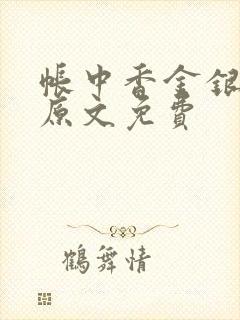 帳中香金銀
原文免費
鶴舞情